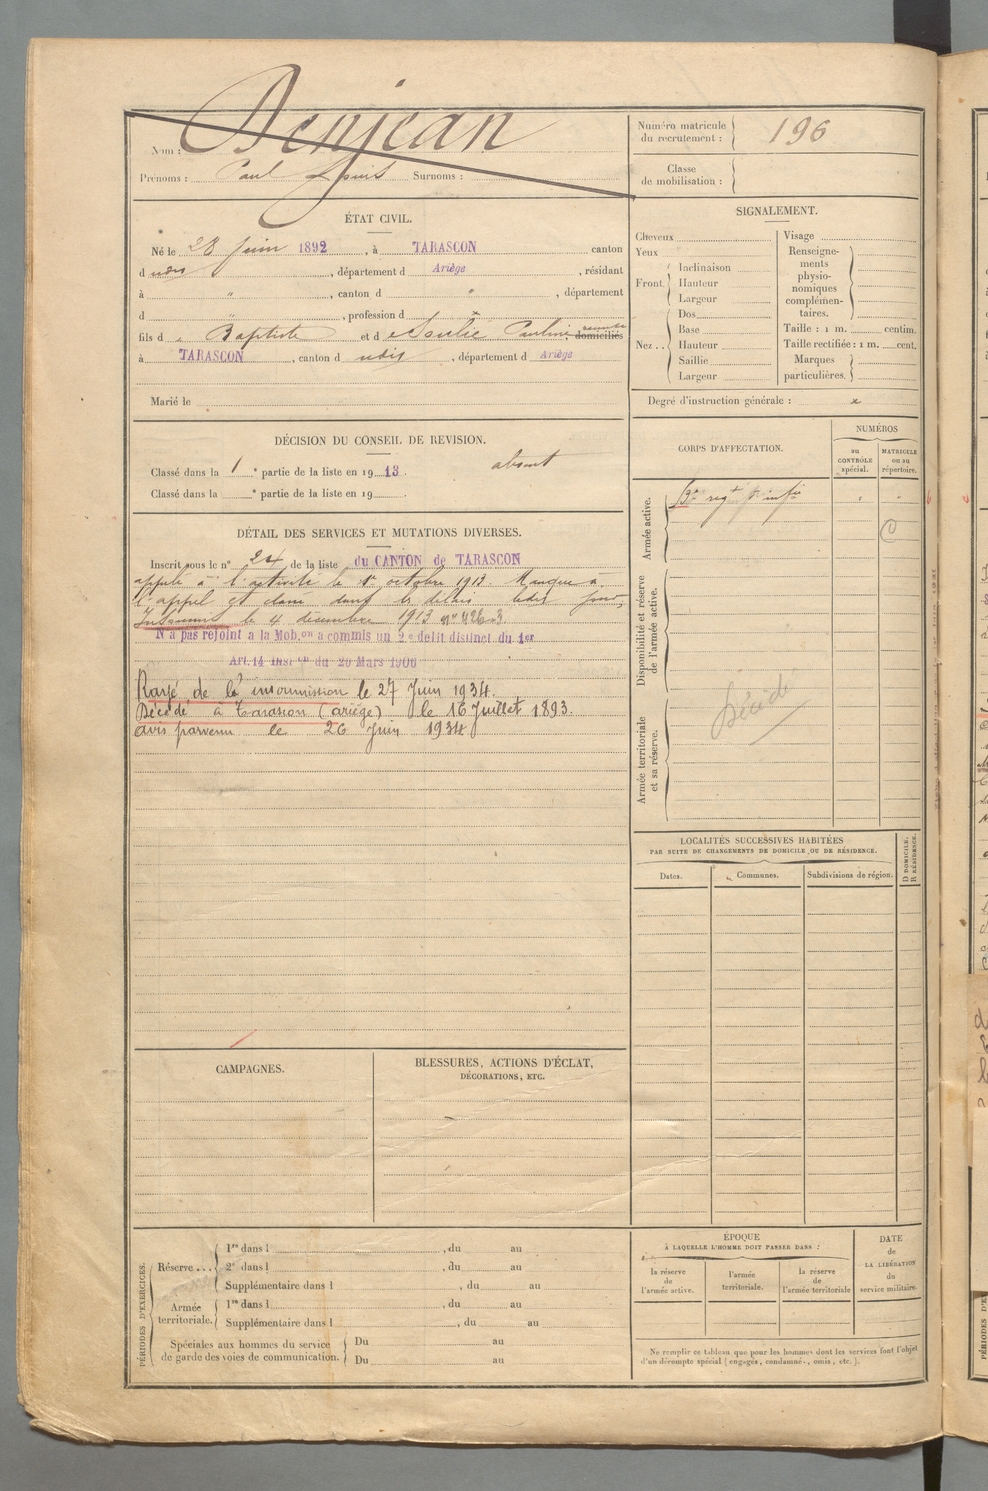 Nom : Denjean
Prénoms : Paul Louis Surnoms :
Numéro matricule du recrutement : 196
Classe de mobilisation :
ÉTAT CIVIL.
Né le 28 Juin 1892, à TARASCON canton
d udis, département d Ariège, résidant
à ", canton d ", département
d , profession d x
fils d Baptiste et d Pauline domiciliés
à TARASCON, canton d udis, département d Ariège
Marié le
SIGNALEMENT.
Cheveux
Yeux
Front.
Inclinaison
Hauteur
Largeur
Nez ..
Dos
Base
Hauteur
Saillie
Largeur
Visage
Renseigne-
ments
physio-
nomiques
complémen-
taires.
Taille : 1 m. centim.
Taille rectifiée : 1 m. cent.
Marques
particulières.
Degré d'instruction générale : x
DÉCISION DU CONSEIL DE REVISION.
Classé dans la 1e partie de la liste en 1913. absent
Classé dans la e partie de la liste en 19 .
CORPS D'AFFECTATION.
NUMÉROS
au CONTRÔLE spécial.
MATRICULE ou au répertoire.
Armée active.
Disponibilité et réserve de l'armée active.
Décédé
Armée territoriale et sa réserve.
DÉTAIL DES SERVICES ET MUTATIONS DIVERSES.
Inscrit sous le n° 24 de la liste du CANTON de TARASCON
appelé à l'activité le 1er octobre 1913. Manque à
l'appel et dans les délais
Insoumis le 4 décembre 1913
N'a pas rejoint a la Mob.on a commis un 2e delit distinct du 1er
Art.14 Inst on du 20 Mars 1906
Rayé de la insoumission le 27 Juin 1934.
Décédé à Tarascon (ariège) le 16 Juillet 1893.
avis parvenu le 26 Juin 1934
LOCALITÉS SUCCESSIVES HABITÉES
PAR SUITE DE CHANGEMENTS DE DOMICILE OU DE RÉSIDENCE.
Dates.
Communes.
Subdivisions de région.
D DOMICILE.
R RÉSIDENCE.
CAMPAGNES.
BLESSURES, ACTIONS D'ÉCLAT,
DÉCORATIONS, ETC.
PÉRIODES D'EXERCICES.
Réserve ...
1re dans l , du au
2e dans l , du au
Supplémentaire dans l , du au
Armée territoriale.
1re dans l , du au
Supplémentaire dans l , du au
Spéciales aux hommes du service
de garde des voies de communication.
Du au
Du au
ÉPOQUE
À LAQUELLE L'HOMME DOIT PASSER DANS :
la réserve de l'armée active.
l'armée territoriale.
la réserve de l'armée territoriale
DATE
de
LA LIBÉRATION
du
service militaire.
Ne remplir ce tableau que pour les hommes dont les services font l'objet
d'un décompte spécial (engagés, condamnés, omis, etc.).